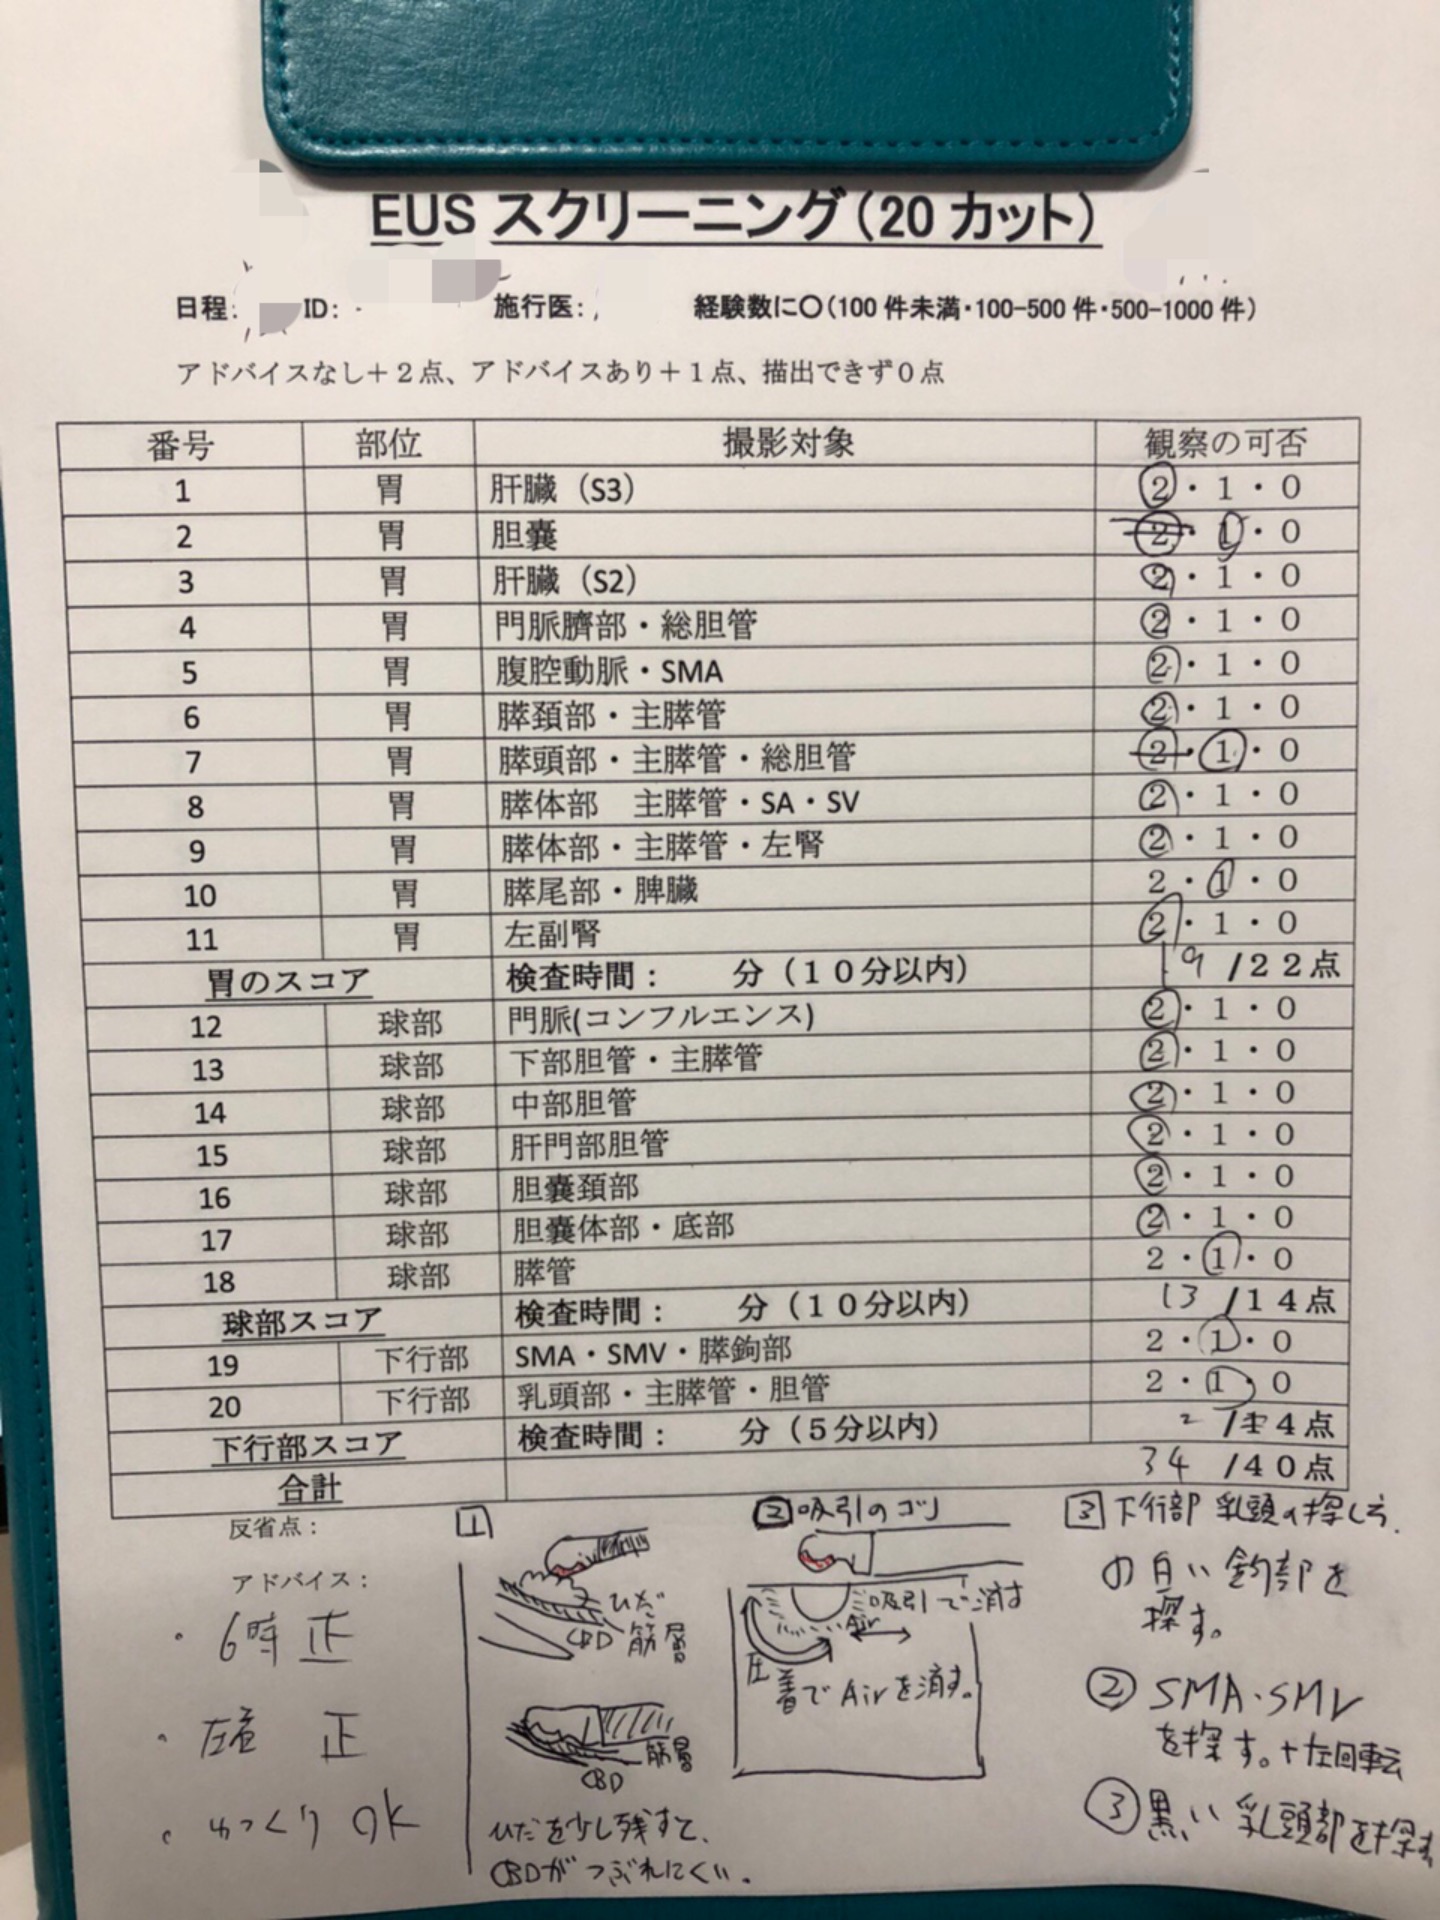 EUS スクリーニング（20 カット）
日程: ID: 施行医: 経験数に〇（100 件未満・100-500 件・500-1000 件）
アドバイスなし＋２点、アドバイスあり＋１点、描出できず０点
番号 部位 撮影対象 観察の可否
1 胃 肝臓（S3） 2・1・0
2 胃 胆嚢 2・1・0
3 胃 肝臓（S2） 2・1・0
4 胃 門脈臍部・総胆管 2・1・0
5 胃 腹腔動脈・SMA 2・1・0
6 胃 膵頚部・主膵管 2・1・0
7 胃 膵頭部・主膵管・総胆管 2・1・0
8 胃 膵体部　主膵管・SA・SV 2・1・0
9 胃 膵体部・主膵管・左腎 2・1・0
10 胃 膵尾部・脾臓 2・1・0
11 胃 左副腎 2・1・0
胃のスコア 検査時間：　　分（１０分以内） 19 /２２点
12 球部 門脈(コンフルエンス) 2・1・0
13 球部 下部胆管・主膵管 2・1・0
14 球部 中部胆管 2・1・0
15 球部 肝門部胆管 2・1・0
16 球部 胆嚢頚部 2・1・0
17 球部 胆嚢体部・底部 2・1・0
18 球部 膵管 2・1・0
球部スコア 検査時間：　　分（１０分以内） 13 /１４点
19 下行部 SMA・SMV・膵鉤部 2・1・0
20 下行部 乳頭部・主膵管・胆管 2・1・0
下行部スコア 検査時間：　　分（５分以内） 2 /４点
合計 34 /４０点
反省点：
アドバイス：
・6時 正
・圧着 正
・ゆっくり OK
1
ひだ
CBD 筋層
筋層
CBD
ひだを少し残すて、
CBDがつぶれにくい。
2 吸引のコツ
吸引で消す
Air
圧着でAirを消す。
3 下行部 乳頭の探し方.
白い鈎部を
探す。
② SMA・SMV
を探す。+左回転
③ 黒い乳頭部を探す